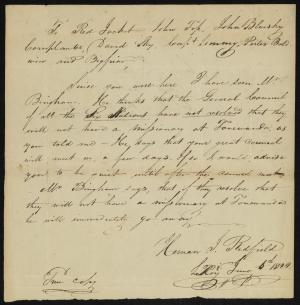 To Red Jacket John Top, John Bluesky
Cornplanter, David Shy, Capt Jemmy, Peter
and
Since you were here I have seen Mr
Bingham. He thinks that the General Council
of all the Six Nations have not resolved that they
will not have a missionary at Tonewanda as
you told me - He says that your great council
will meet in a few days. If so I would advise
you to be quiet until after the council meet
- Mr Bingham says, that if they resolve that
they will not have a missionary at Tonawanda
he will immediately go away
Heman J. Redfield
LeRoy June 6th
True copy